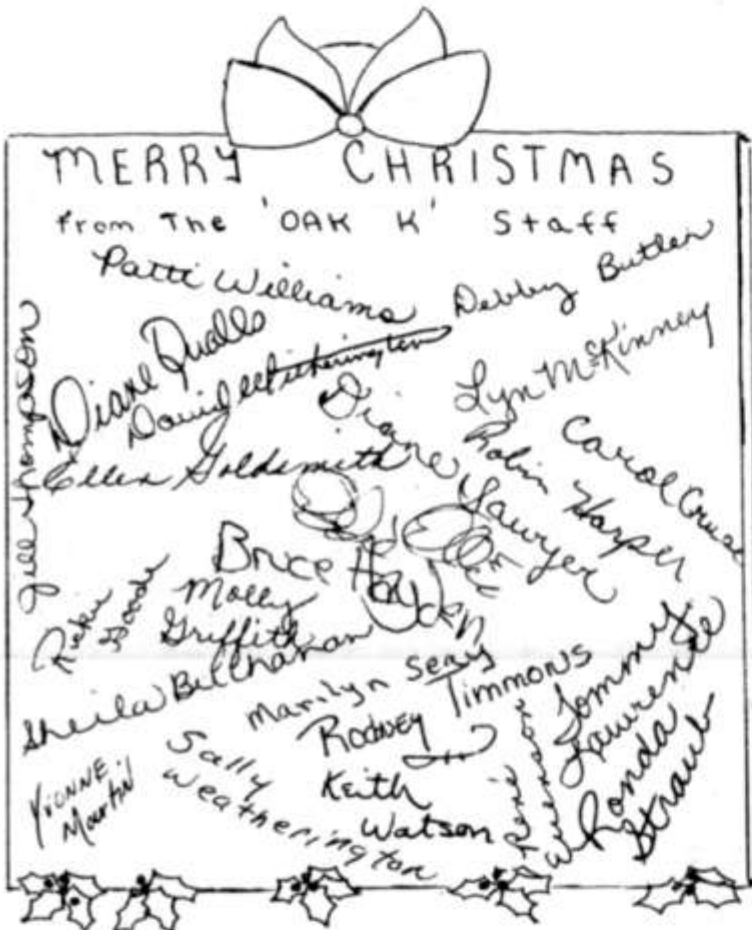 MERRY CHRISTMAS
from The 'OAK K' Staff
Patti Williams
Debby Butler
Jill Thompson
Diane Qualls
David Witherington
Lyn McKinney
Diane
Sawyer
Robin Harper
Carol Cruse
Ellen Goldsmith
Bruce Hayden
Rickie
Goode
Molly
Griffith
Sheila Buchanan
Marilyn Sery
Rodney Timmons
Tommy
Lawrence
Ronda
Straub
Yvonne
Martin
Sally
Weatherington
Keith
Watson